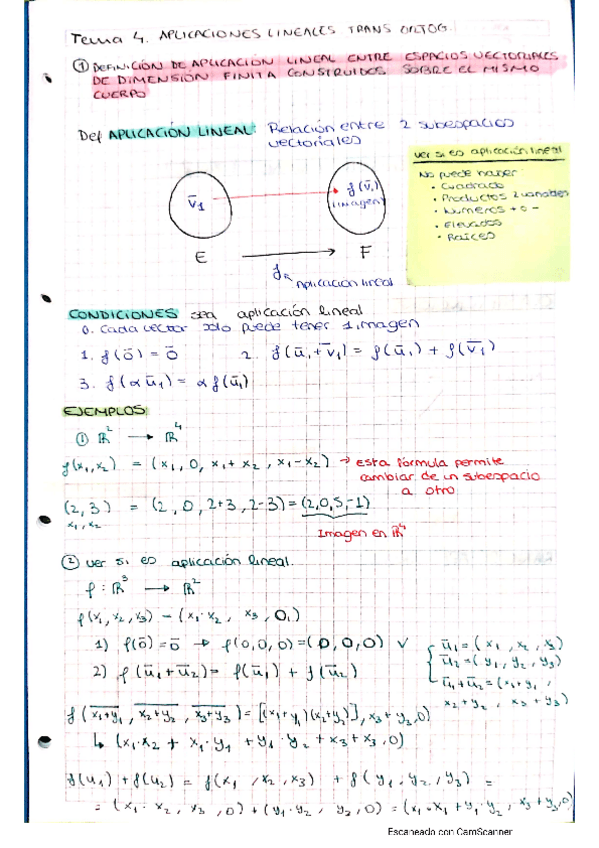 Tema 4. APLICACIONES LINEALES TRANS ORTOG.
① DEFINICIÓN DE APLICACIÓN LINEAL ENTRE ESPACIOS VECTORIALES
DE DIMENSIÓN FINITA CONSTRUIDOS SOBRE EL MISMO
CUERPO
Def APLICACIÓN LINEAL: Relación entre 2 subespacios
vectoriales
ver si es aplicación lineal
No puede haber:
• Cuadrado
• Productos 2 variables
• Números + o -
• Elevados
• Raíces
v̄1
f(v̄1)
(imagen)
E
F
f
Aplicación lineal
CONDICIONES sea aplicación lineal
0. Cada vector solo puede tener 1 imagen
1. f(ō) = ō 2. f(ū1+v̄1) = f(ū1) + f(v̄1)
3. f(αū1) = αf(ū1)
EJEMPLOS:
① ℝ² → ℝ⁴
f(x1,x2) = (x1, 0, x1+x2, x1-x2) → esta fórmula permite
cambiar de un subespacio
a otro
(2,3) = (2, 0, 2+3, 2-3) = (2,0,5,-1)
x1, x2
Imagen en ℝ⁴
② ver si es aplicación lineal.
f: ℝ³ → ℝ²
f(x1,x2,x3) = (x1·x2, x3, 0)
1) f(ō)=ō → f(0,0,0)=(0,0,0) ✓
2) f(ū1+ū2)= f(ū1) + f(ū2)
ū1=(x1, x2, x3)
ū2=(y1, y2, y3)
ū1+ū2=(x1+y1,
x2+y2, x3+y3)
f(x1+y1, x2+y2, x3+y3)=[(x1+y1)(x2+y2)], x3+y3,0)
↳ (x1·x2 + x1·y1 + y1·y2 + x3+x3,0)
f(u1)+f(u2) = f(x1, x2, x3) + f(y1, y2, y3) =
= (x1·x2, x3, 0)+(y1·y2, y3, 0) = (x1·x1+y1·y2, x3+y3,0)
Escaneado con CamScanner